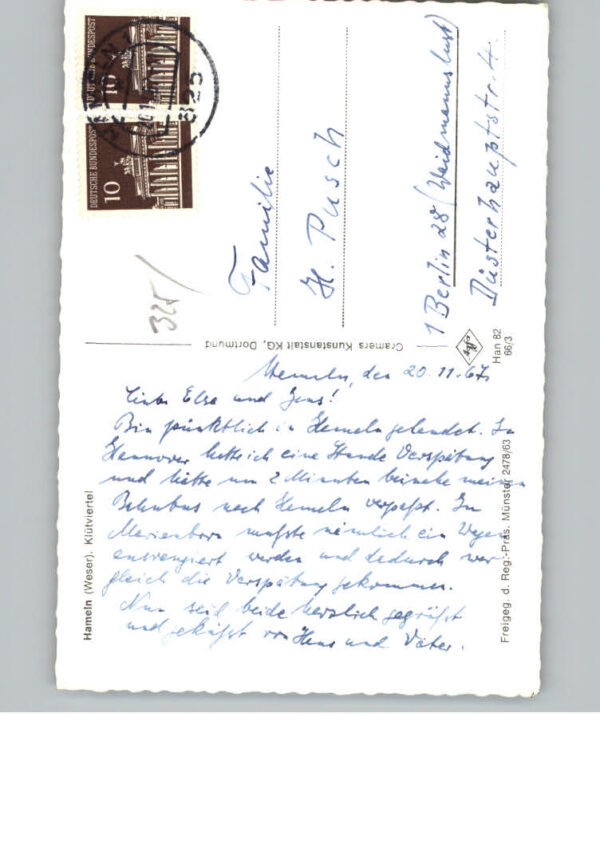 DEUTSCHE BUNDESPOST
10
DEUTSCHE BUNDESPOST
10
20.11.67
325
Familie
H. Pusch
1 Berlin 28 (Waidmannslust)
Düsterhauptstr. 4
Cramers Kunstanstalt KG, Dortmund
Han 82
66/3
Hameln (Weser). Klütviertel
Freigeg. d. Reg.-Präs. Münster 2478/63
Hameln, den 20.11.67.
Liebe Elsa und Jens!
Bin pünktlich in Hameln gelandet. In
Hannover hatte ich eine Stunde Verspätung
und hätte um 2 Minuten beinahe meinen
Bahnbus nach Hameln verpaßt. In
Marienborn mußte nämlich ein Wagen
ausrangiert werden und dadurch war
gleich die Verspätung gekommen.
Nun seid beide herzlich gegrüßt
und geküßt von Hans und Vater.